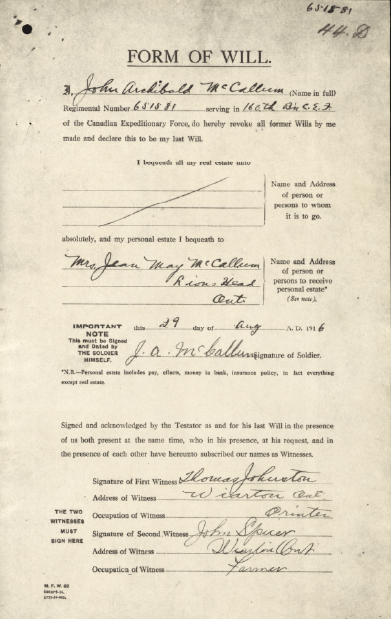 651581
44. D
FORM OF WILL.
I, John Archibald McCallum (Name in full)
Regimental Number 651581 serving in 160th Bn C.E.F
of the Canadian Expeditionary Force, do hereby revoke all former Wills by me
made and declare this to be my last Will.
I bequeath all my real estate unto
Name and Address
of person or
persons to whom
it is to go.
absolutely, and my personal estate I bequeath to
Mrs. Jean May McCallum
Lions Head
Ont.
Name and Address
of person or
persons to receive
personal estate*
(See note).
IMPORTANT
NOTE
This must be Signed
and Dated by
THE SOLDIER
HIMSELF.
this 29 day of Aug A. D. 1916
J. A. McCallum Signature of Soldier.
*N.B.—Personal estate includes pay, effects, money in bank, insurance policy, in fact everything
except real estate.
Signed and acknowledged by the Testator as and for his last Will in the presence
of us both present at the same time, who in his presence, at his request, and in
the presence of each other have hereunto subscribed our names as Witnesses.
THE TWO
WITNESSES
MUST
SIGN HERE
Signature of First Witness Thomas Johnston
Address of Witness Wiarton Ont
Occupation of Witness Printer
Signature of Second Witness John Spicer
Address of Witness Wiarton Ont
Occupation of Witness Farmer
M. F. W. 82